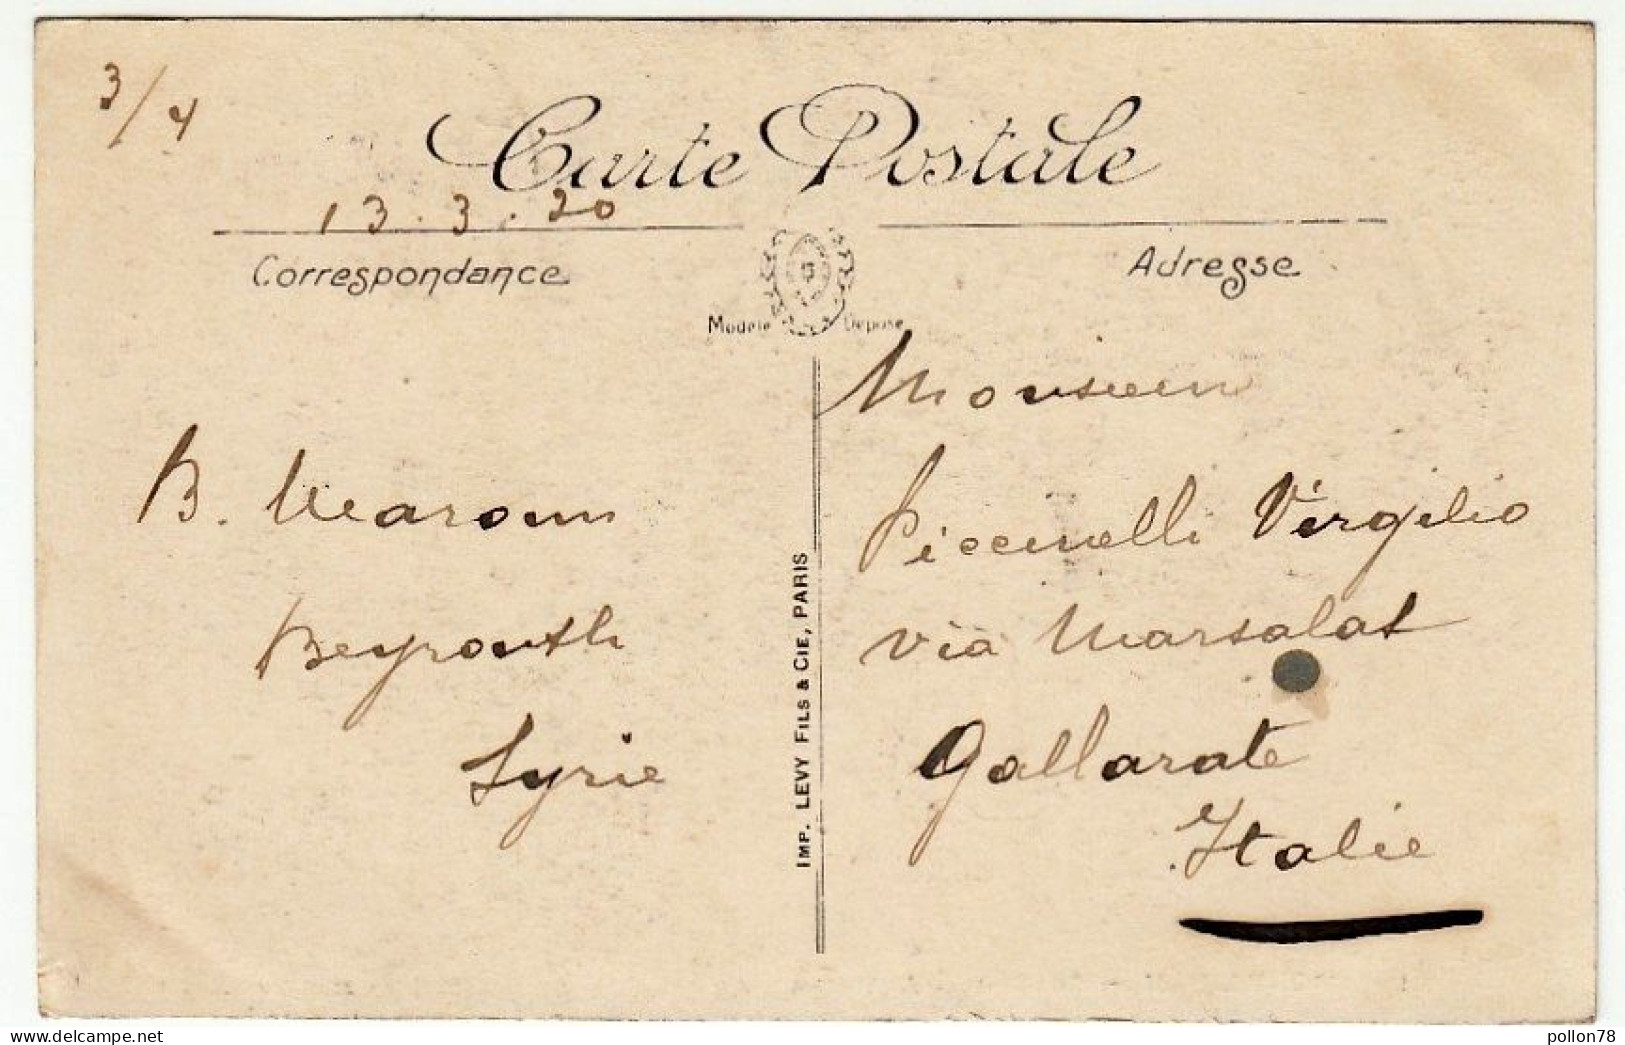 3/4
Carte Postale
13.3.20
Correspondance
Adresse
Modèle Déposé
Monsieur
B. Maroun
Piccinelli Virgilio
Beyrouth
via Marsalat
Syrie
Gallarate
Italie
IMP. LEVY FILS & CIE, PARIS
www.delcampe.net
pollon78